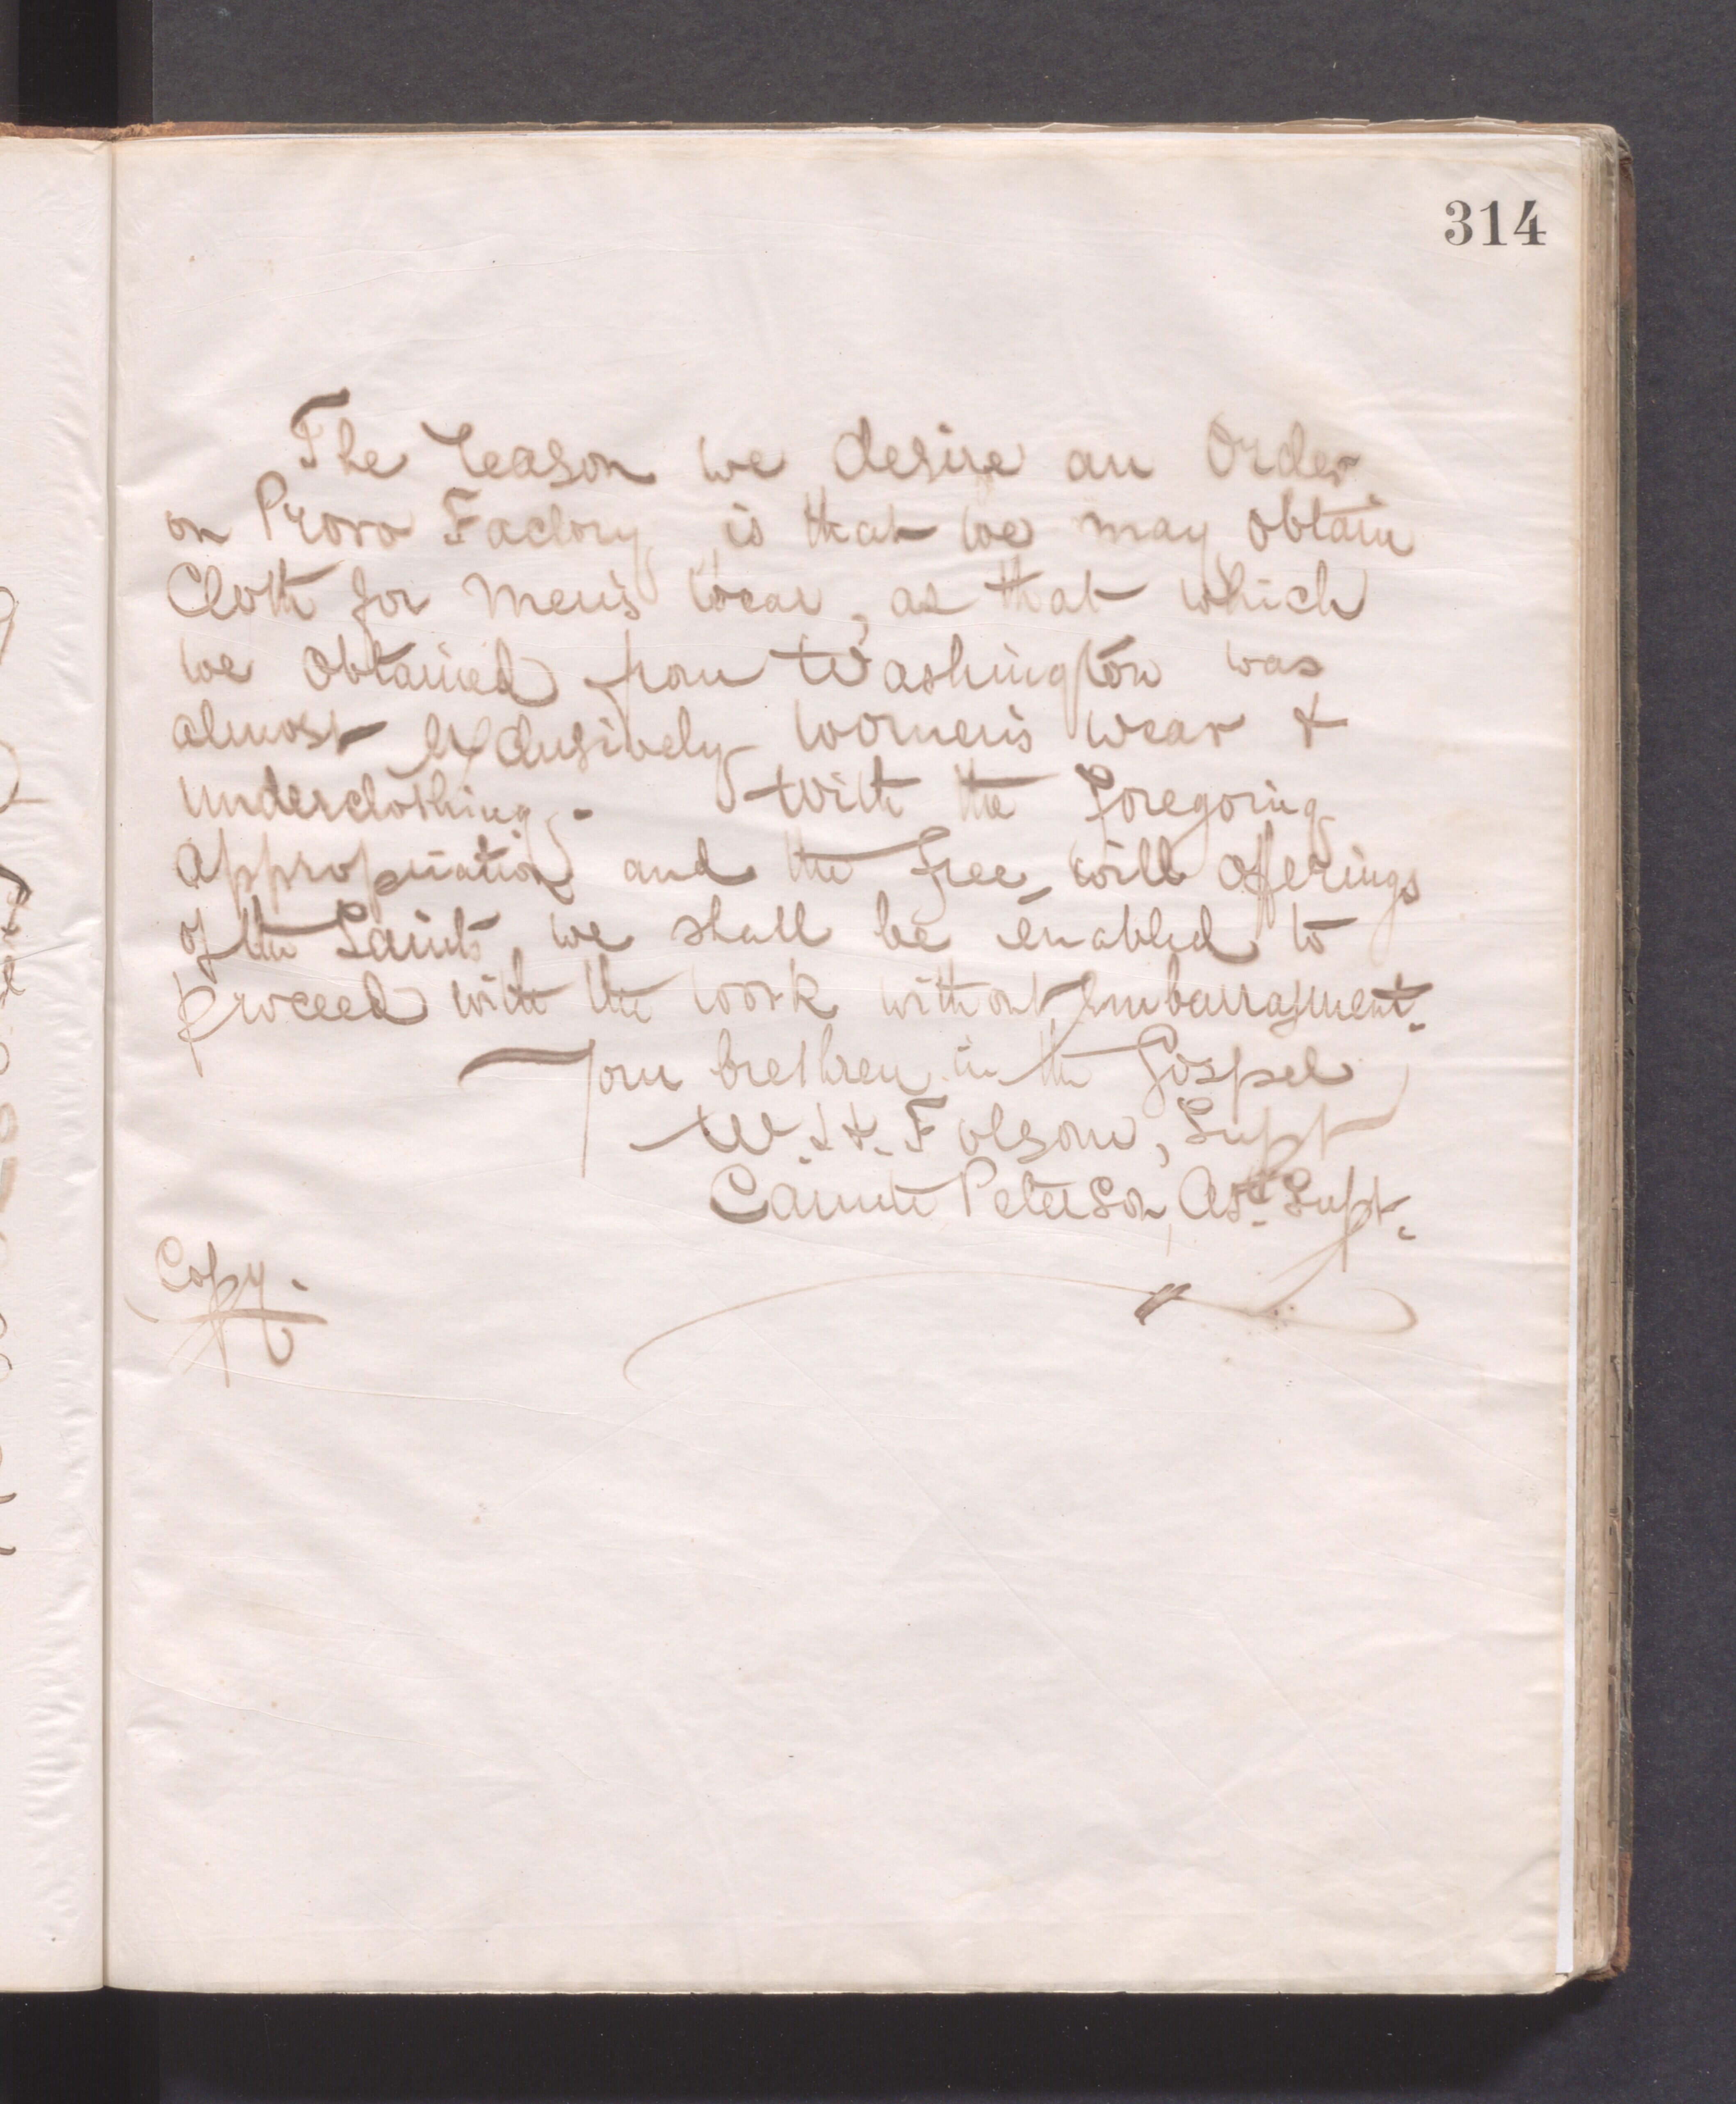 314
The reason we desire an Order
on Provo Factory is that we may obtain
Cloth for men's wear, as that which
we obtained from Washington was
almost exclusively women's wear &
underclothing. With the foregoing
appropriation and the free will offerings
of the Saints, we shall be enabled to
proceed with the work without embarrassment.
Your brethren in the Gospel
W. H. Folsom, Supt
Canute Peterson, Asst. Supt.
Copy.